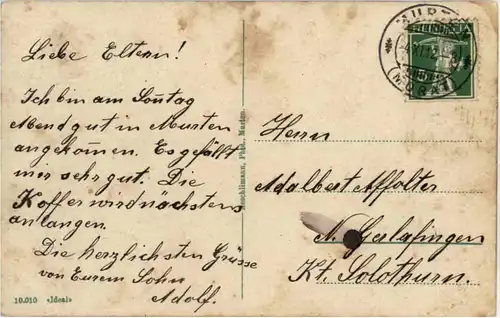 Liebe Eltern!
Ich bin am Sontag
Abend gut in Murten
angekomen. Es gefällt
mir sehr gut. Die
Koffer wird nächstens
anlangen.
Die herzlichsten Grüsse
von Eurem Sohn
Adolf.
10.010 «Ideal»
Aeschlimann, Phot., Murten
MURTEN
(MORAT)
Herrn
Adalbert Affolter
N. Gerlafingen
Kt. Solothurn.